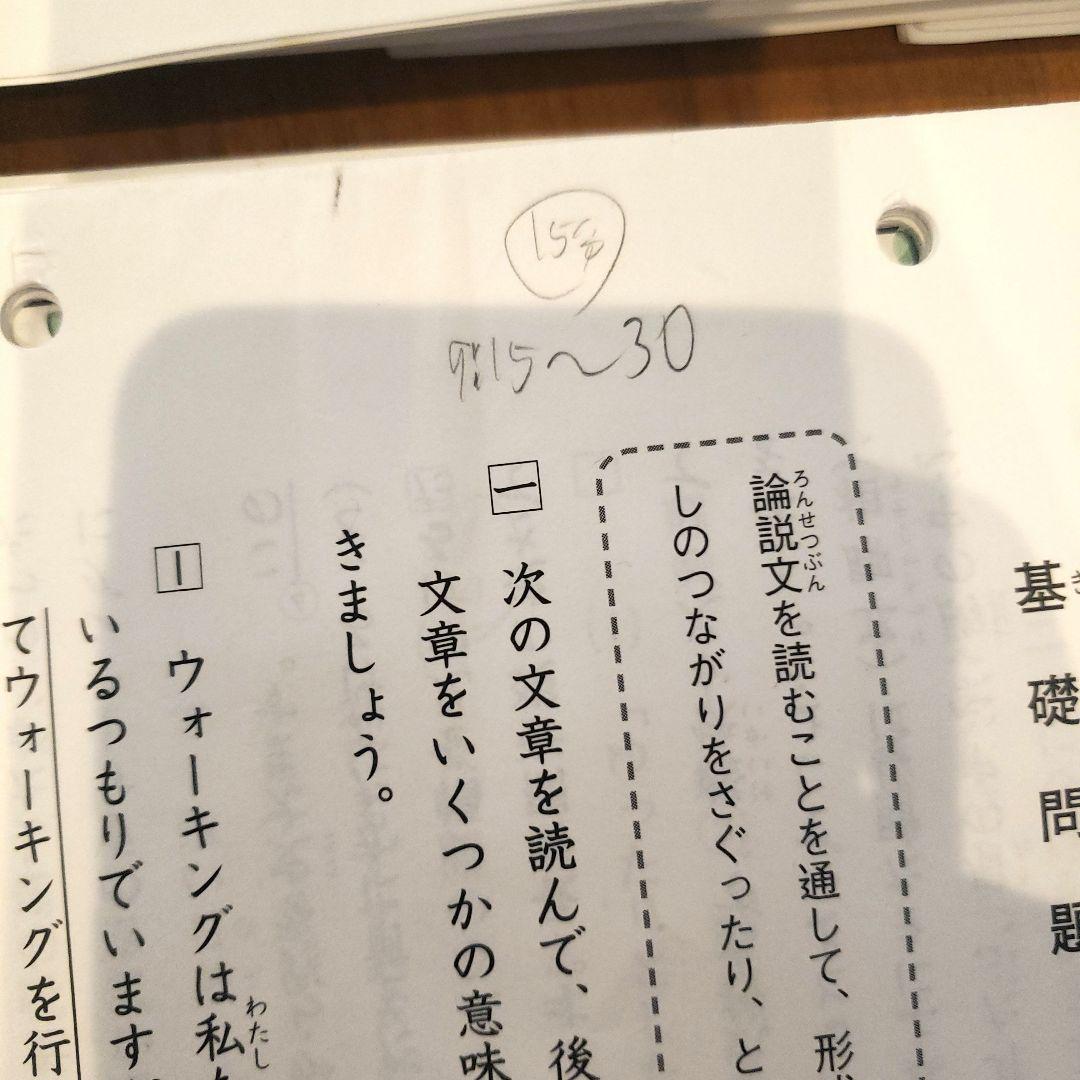 15分
7:15〜30
基礎問題
論説文を読むことを通して、形
ろんせつぶん
しのつながりをさぐったり、と
一 次の文章を読んで、後
文章をいくつかの意味
きましょう。
1 ウォーキングは私
わたし
いるつもりでいます
てウォーキングを行